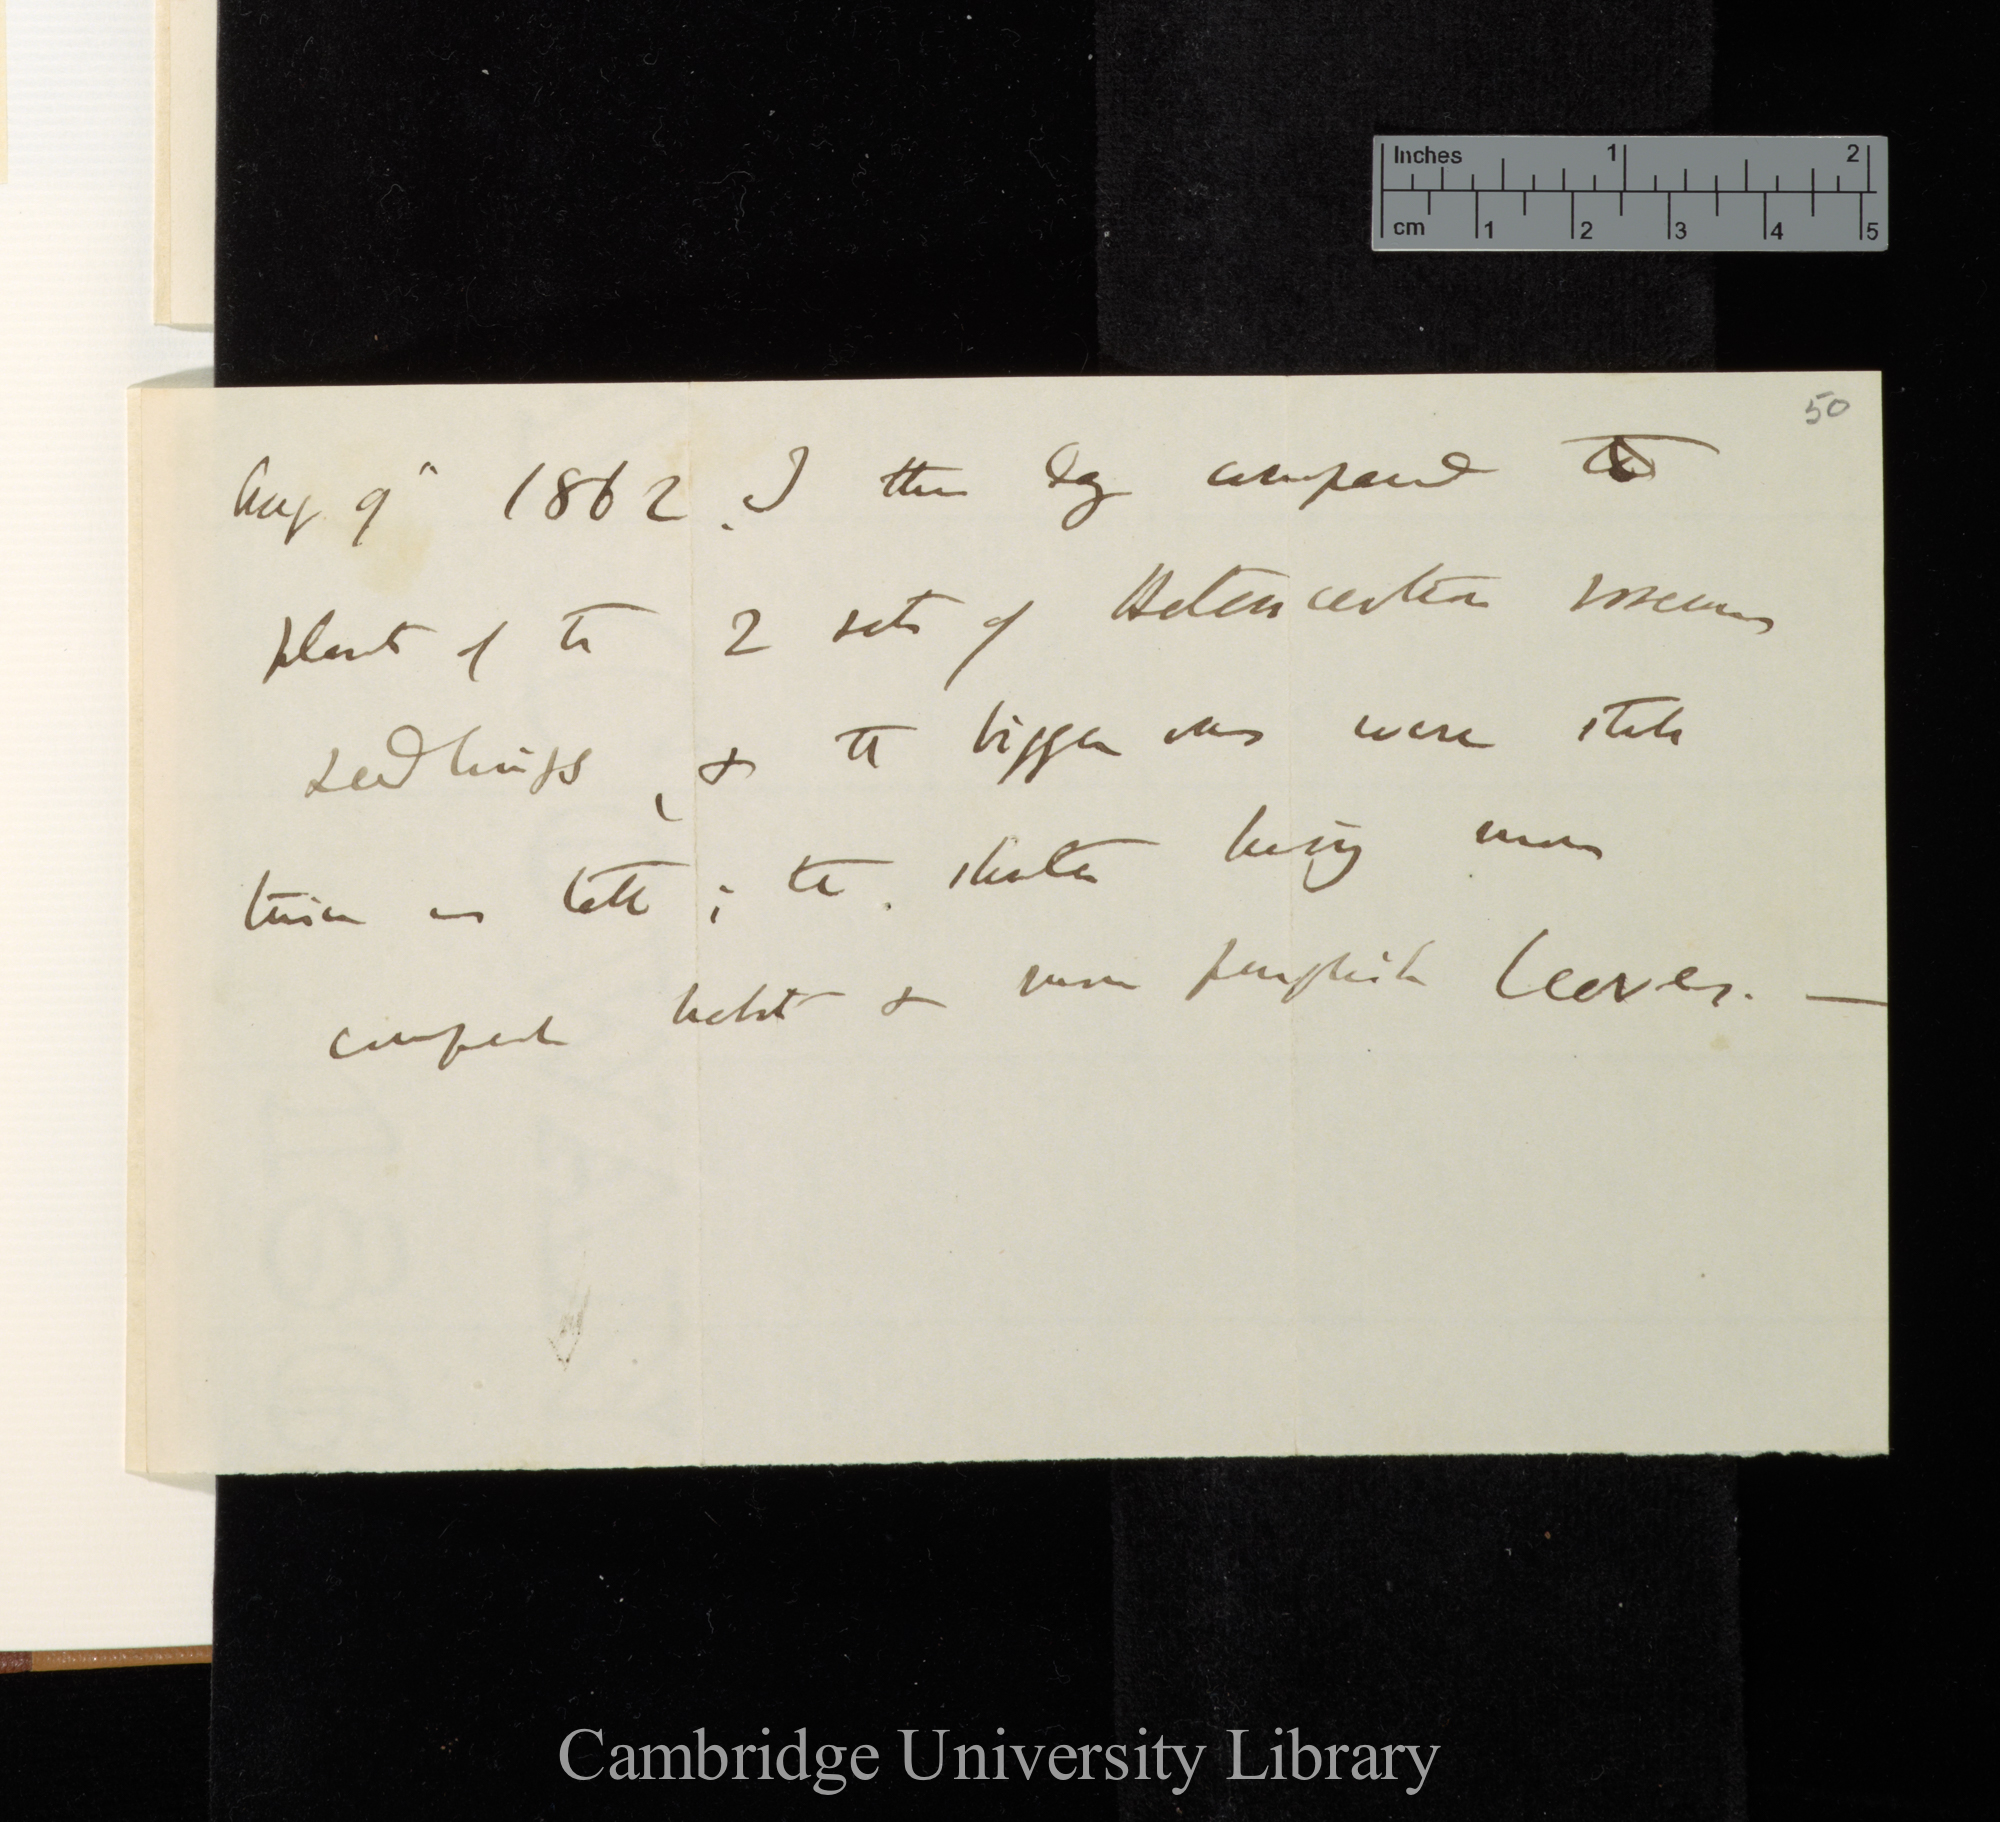 Inches 1 2
cm 1 2 3 4 5
50
Aug 9" 1862. I this day compared the
plants of the 2 sets of Heterocentron roseum
seedlings, & the bigger ones were still
twice as tall; the shorter having more
compact habit & more purplish leaves. —
Cambridge University Library